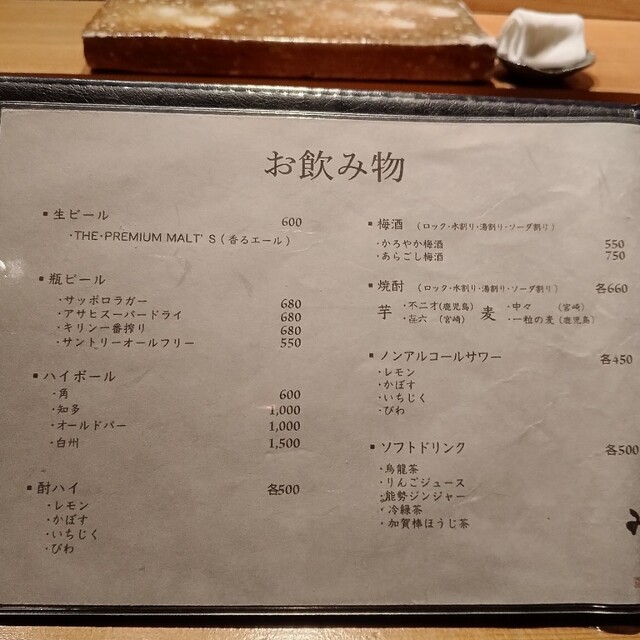 お飲み物
▪生ビール 600
・THE・PREMIUM MALT'S（香るエール）
▪瓶ビール
・サッポロラガー 680
・アサヒスーパードライ 680
・キリン一番搾り 680
・サントリーオールフリー 550
▪ハイボール
・角 600
・知多 1,000
・オールドパー 1,000
・白州 1,500
▪酎ハイ 各500
・レモン
・かぼす
・いちじく
・びわ
▪梅酒 （ロック・水割り・湯割り・ソーダ割り）
・かろやか梅酒 550
・あらごし梅酒 750
▪焼酎 （ロック・水割り・湯割り・ソーダ割り） 各660
芋 ・不二才(鹿児島) 麦 ・中々 （宮崎）
・㐂六 （宮崎） ・一粒の麦(鹿児島)
▪ノンアルコールサワー 各450
・レモン
・かぼす
・いちじく
・びわ
▪ソフトドリンク 各500
・烏龍茶
・りんごジュース
・能勢ジンジャー
・冷緑茶
・加賀棒ほうじ茶